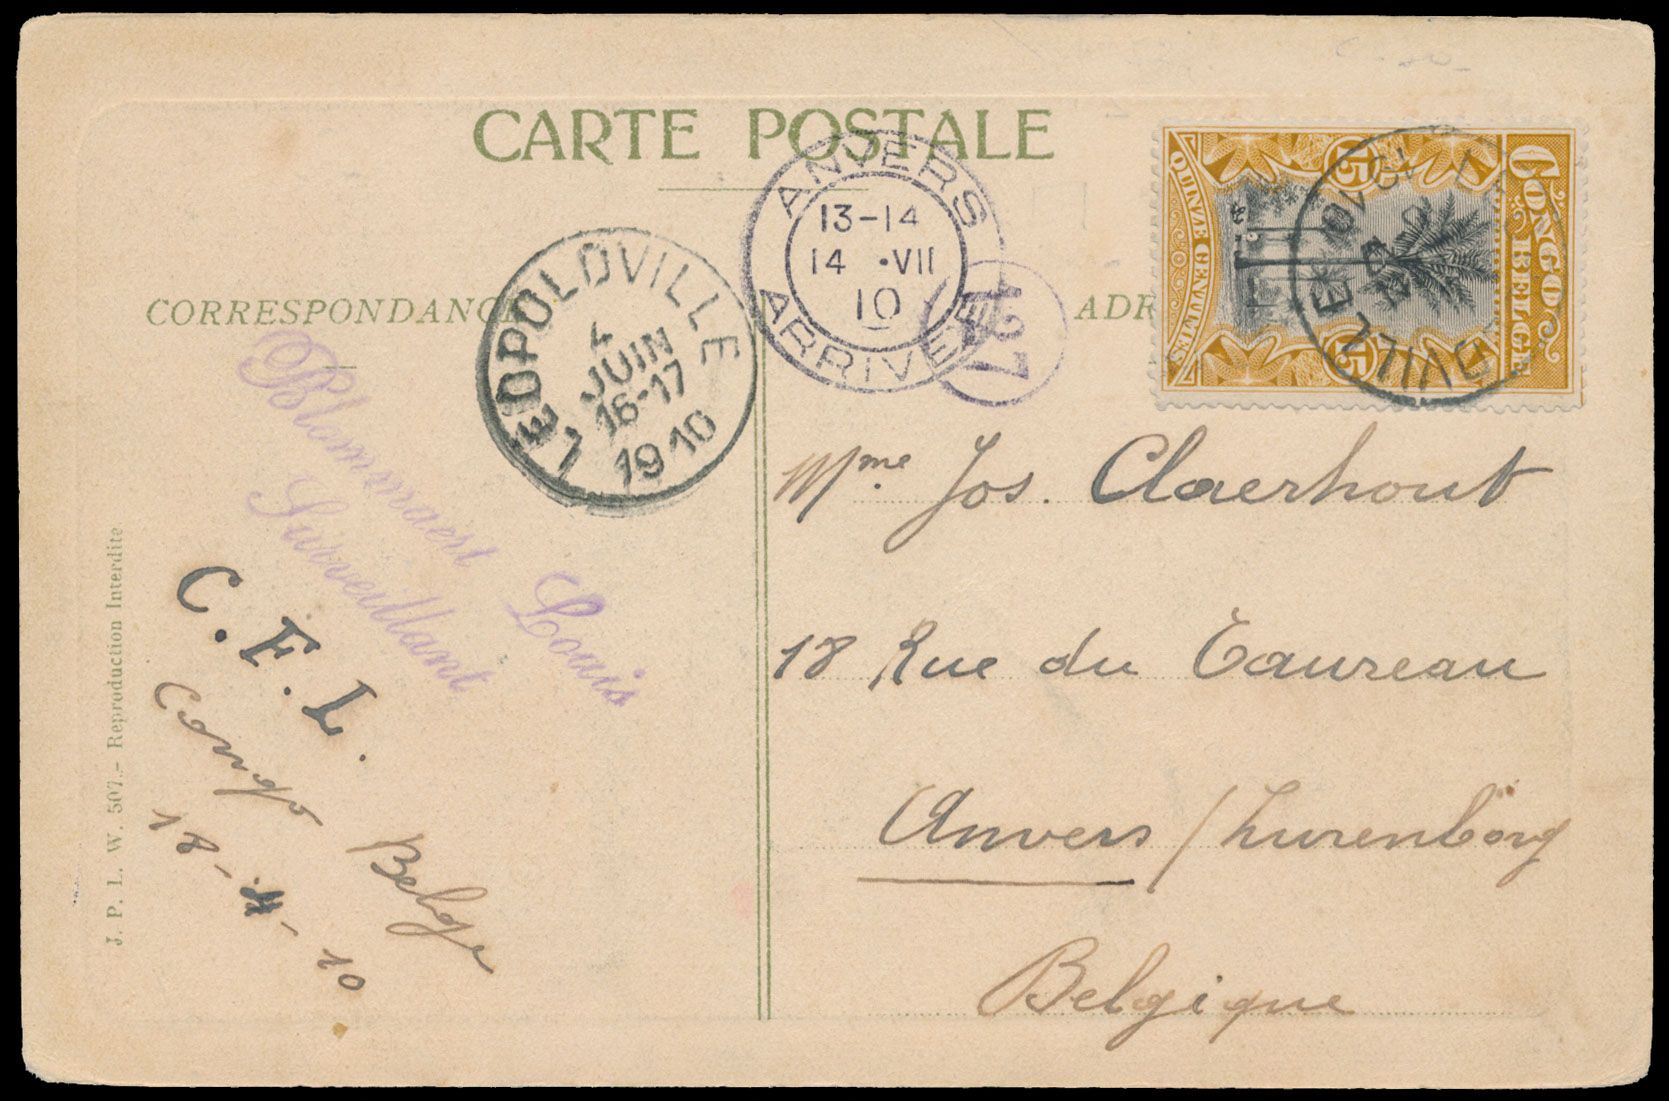 CARTE POSTALE
CORRESPONDANC
ADR
CONGO
BELGE
15
15
QUINZE CENTIMES
VILLE
ANVERS
13-14
14 •VII
10
ARRIVEE
127
LEOPOLDVILLE
4
JUIN
16-17
1910
Blommaert Louis
Surveillant
C.F.L.
Congo Belge
18-4-10
J. P. L. W. 507.- Reproduction Interdite
Mme Jos. Claerhout
18 Rue du Taureau
Anvers / Lurenborg
Belgique